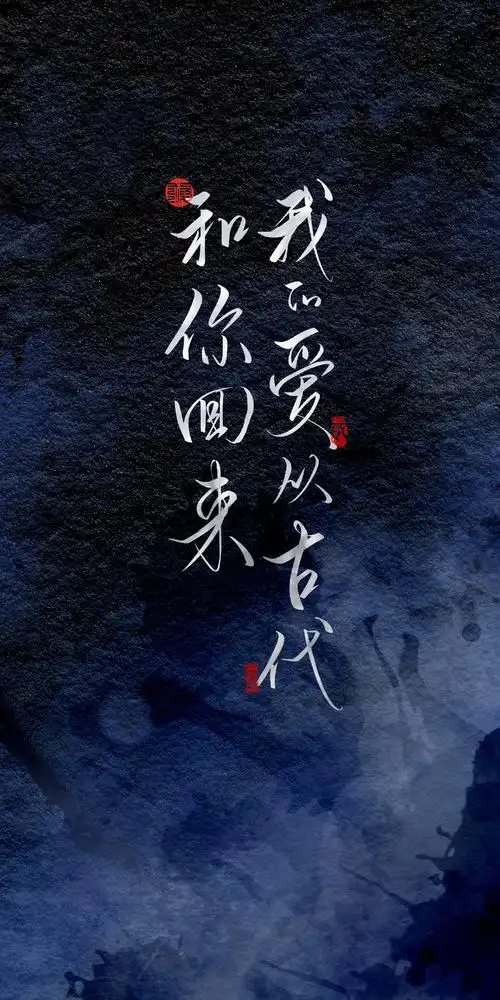 我的爱从古代
和你回来